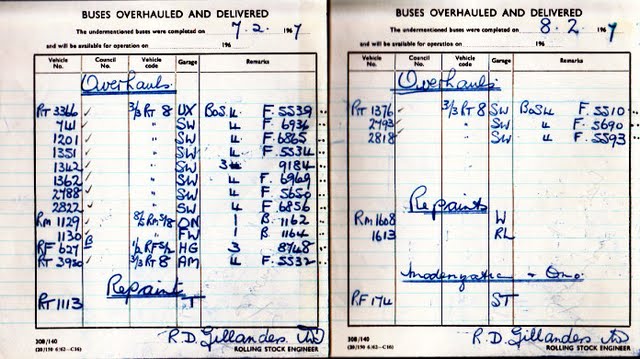 BUSES OVERHAULED AND DELIVERED
The undermentioned buses were completed on 7.2. 1967
and will be available for operation on 196
Vehicle No. Council No. Vehicle code Garage Remarks
Overhauls
RT 3366 ✓ 3/3 RT 8 UX BoS 4 F. 5539
741 ✓ " SW 4 F. 6936
1201 ✓ " SW 4 F. 6865
1351 " SW 4 F. 5534
1342 ✓ " SW 3 9184
1362 ✓ " SW 4 F. 6969
2788 ✓ " SW 4 F. 5650
2822 ✓ " SW 4 F. 6856
RM 1129 ON 1 B. 1162
1130 FW 1 B. 1164
RF 627 B HG 3 8748
RT 3930 ✓ 3/3 RT 8 AM 4 F. 5532
Repaint
RT 1113 T
308/140
R.D. Gillanders
ROLLING STOCK ENGINEER
BUSES OVERHAULED AND DELIVERED
The undermentioned buses were completed on 8.2 1967
and will be available for operation on 196
Vehicle No. Council No. Vehicle code Garage Remarks
Overhauls
RT 1376 ✓ 3/3 RT 8 SW BoS 4 F. 5510
2793 ✓ " SW 4 F. 5690
2818 ✓ " SW 4 F. 5593
Repaints
RM 1608 W
1613 RL
Modernization + One
RF 174 ST
308/140
R.D. Gillanders
ROLLING STOCK ENGINEER